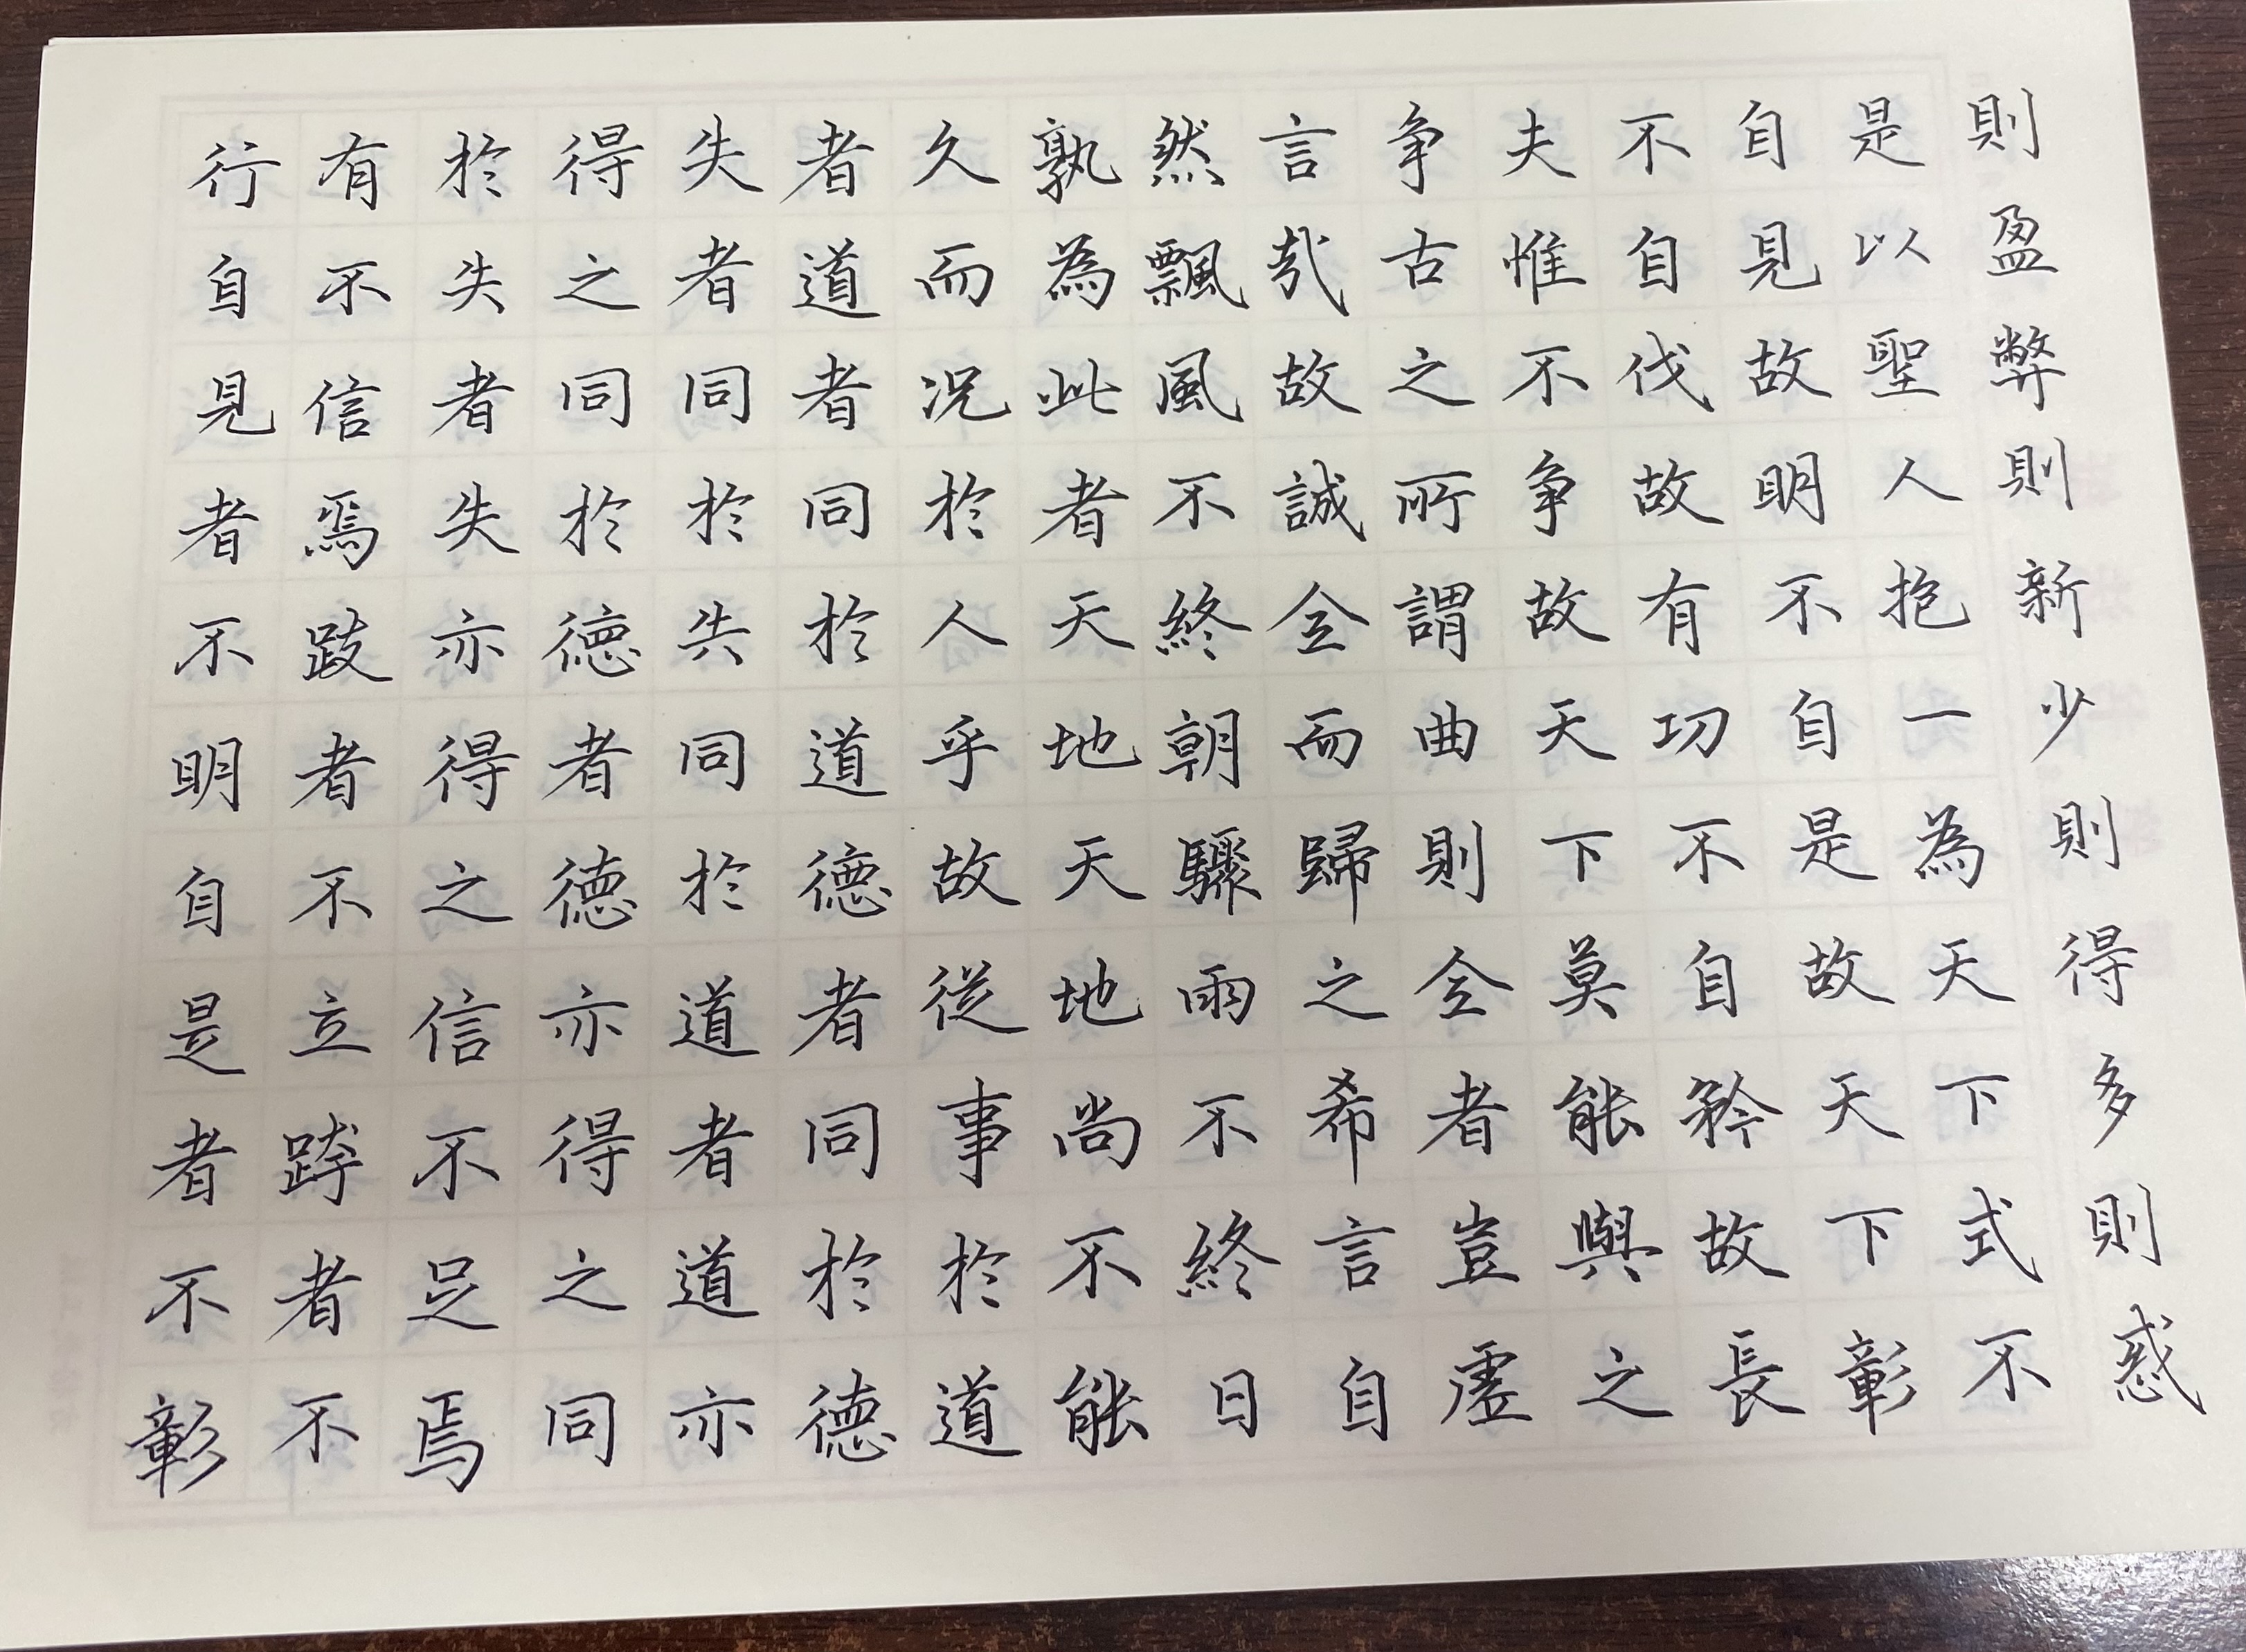 則盈弊則新少則得多則惑
是以聖人抱一為天下式不
自見故明不自是故天下彰
不自伐故有功不自矜故長
夫惟不争故天下莫能與之
争古之所謂曲則全者豈虛
言哉故誠全而歸之希言自
然飄風不終朝驟雨不終日
孰為此者天地天地尚不能
久而況於人乎故從事於道
者道者同於道德者同於德
失者同於失同於道者道亦
得之同於德者德亦得之同
於失者失亦得之信不足焉
有不信焉跂者不立跨者不
行自見者不明自是者不彰